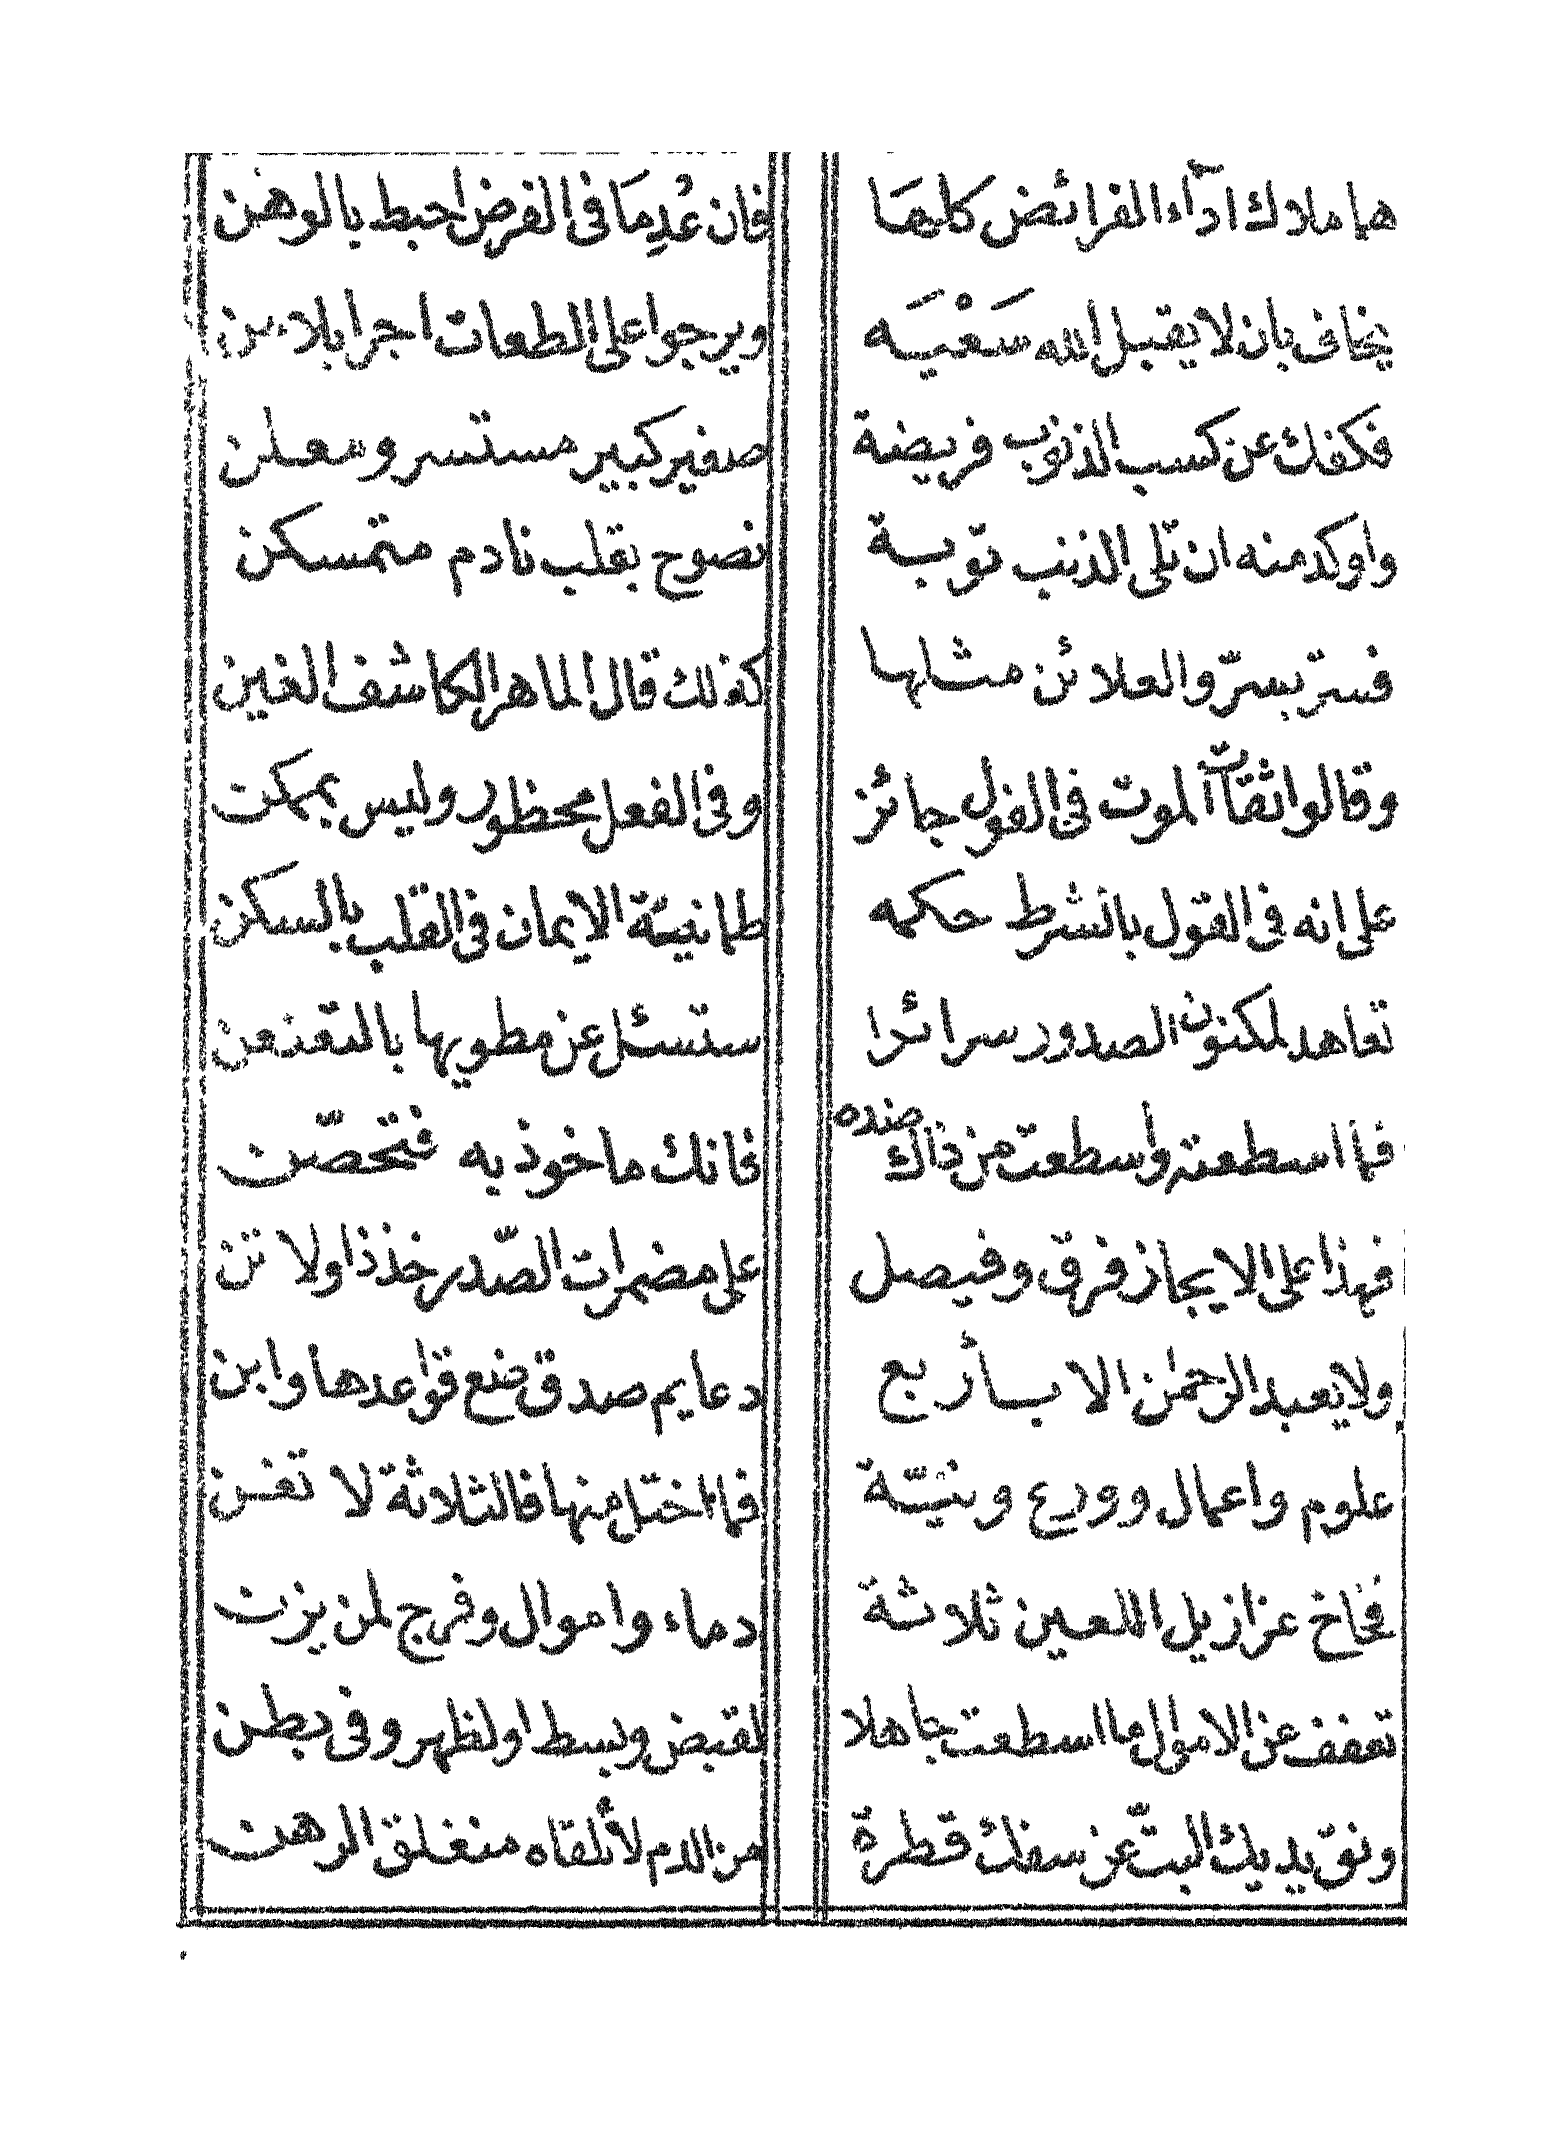 هما ملاك اداء الفرائض كلها فان عُدِمَا فى الفرض احبط بالوهن
يخاف بان لا يقبل الله سَعْيَه ويرجوا على الطعات اجرا بلا من
فكفك عن كسب الذنوب فريضة صغير كبير مستسر ومعلن
واوكد منه ان تلى الذنب توبة نصوح بقلب نادم متمسكن
فستر بسرّ والعلائن مثلها كذلك قال الماهر الكاشف الغين
وقالوا ثقات الموت فى القول جائز وفى الفعل محظور وليس بممكن
على انه فى القول بالشرط حكمه طمانيّة الايمان فى القلب بالسكن
تعاهد لمكنون الصدور سرائرا ستسئل عن مطويها بالتعنعن
فما اسطعته واسطعت من ذاك صنده فانك ماخوذ به فتحصّن
فهذا على الايجاز فرق وفيصل على مضمرات الصّدر خذ ذا ولا تن
ولا يعبد الرحمٰن الا بأربع دعايم صدق ضع قواعدها وابن
علوم واعمال وورع ونيّة فما اختل منها فالثلاثة لا تغن
فخاخ عزازيل اللعين ثلاثة دماء واموال وفرج لمن يزن
تعفف عن الاموال ما اسطعت جاهلا لقبض وبسط او لظهر وفى بطن
ونق يديك البتّ عن سفك قطرة من الدم لا تلقاه منغلق الرهن